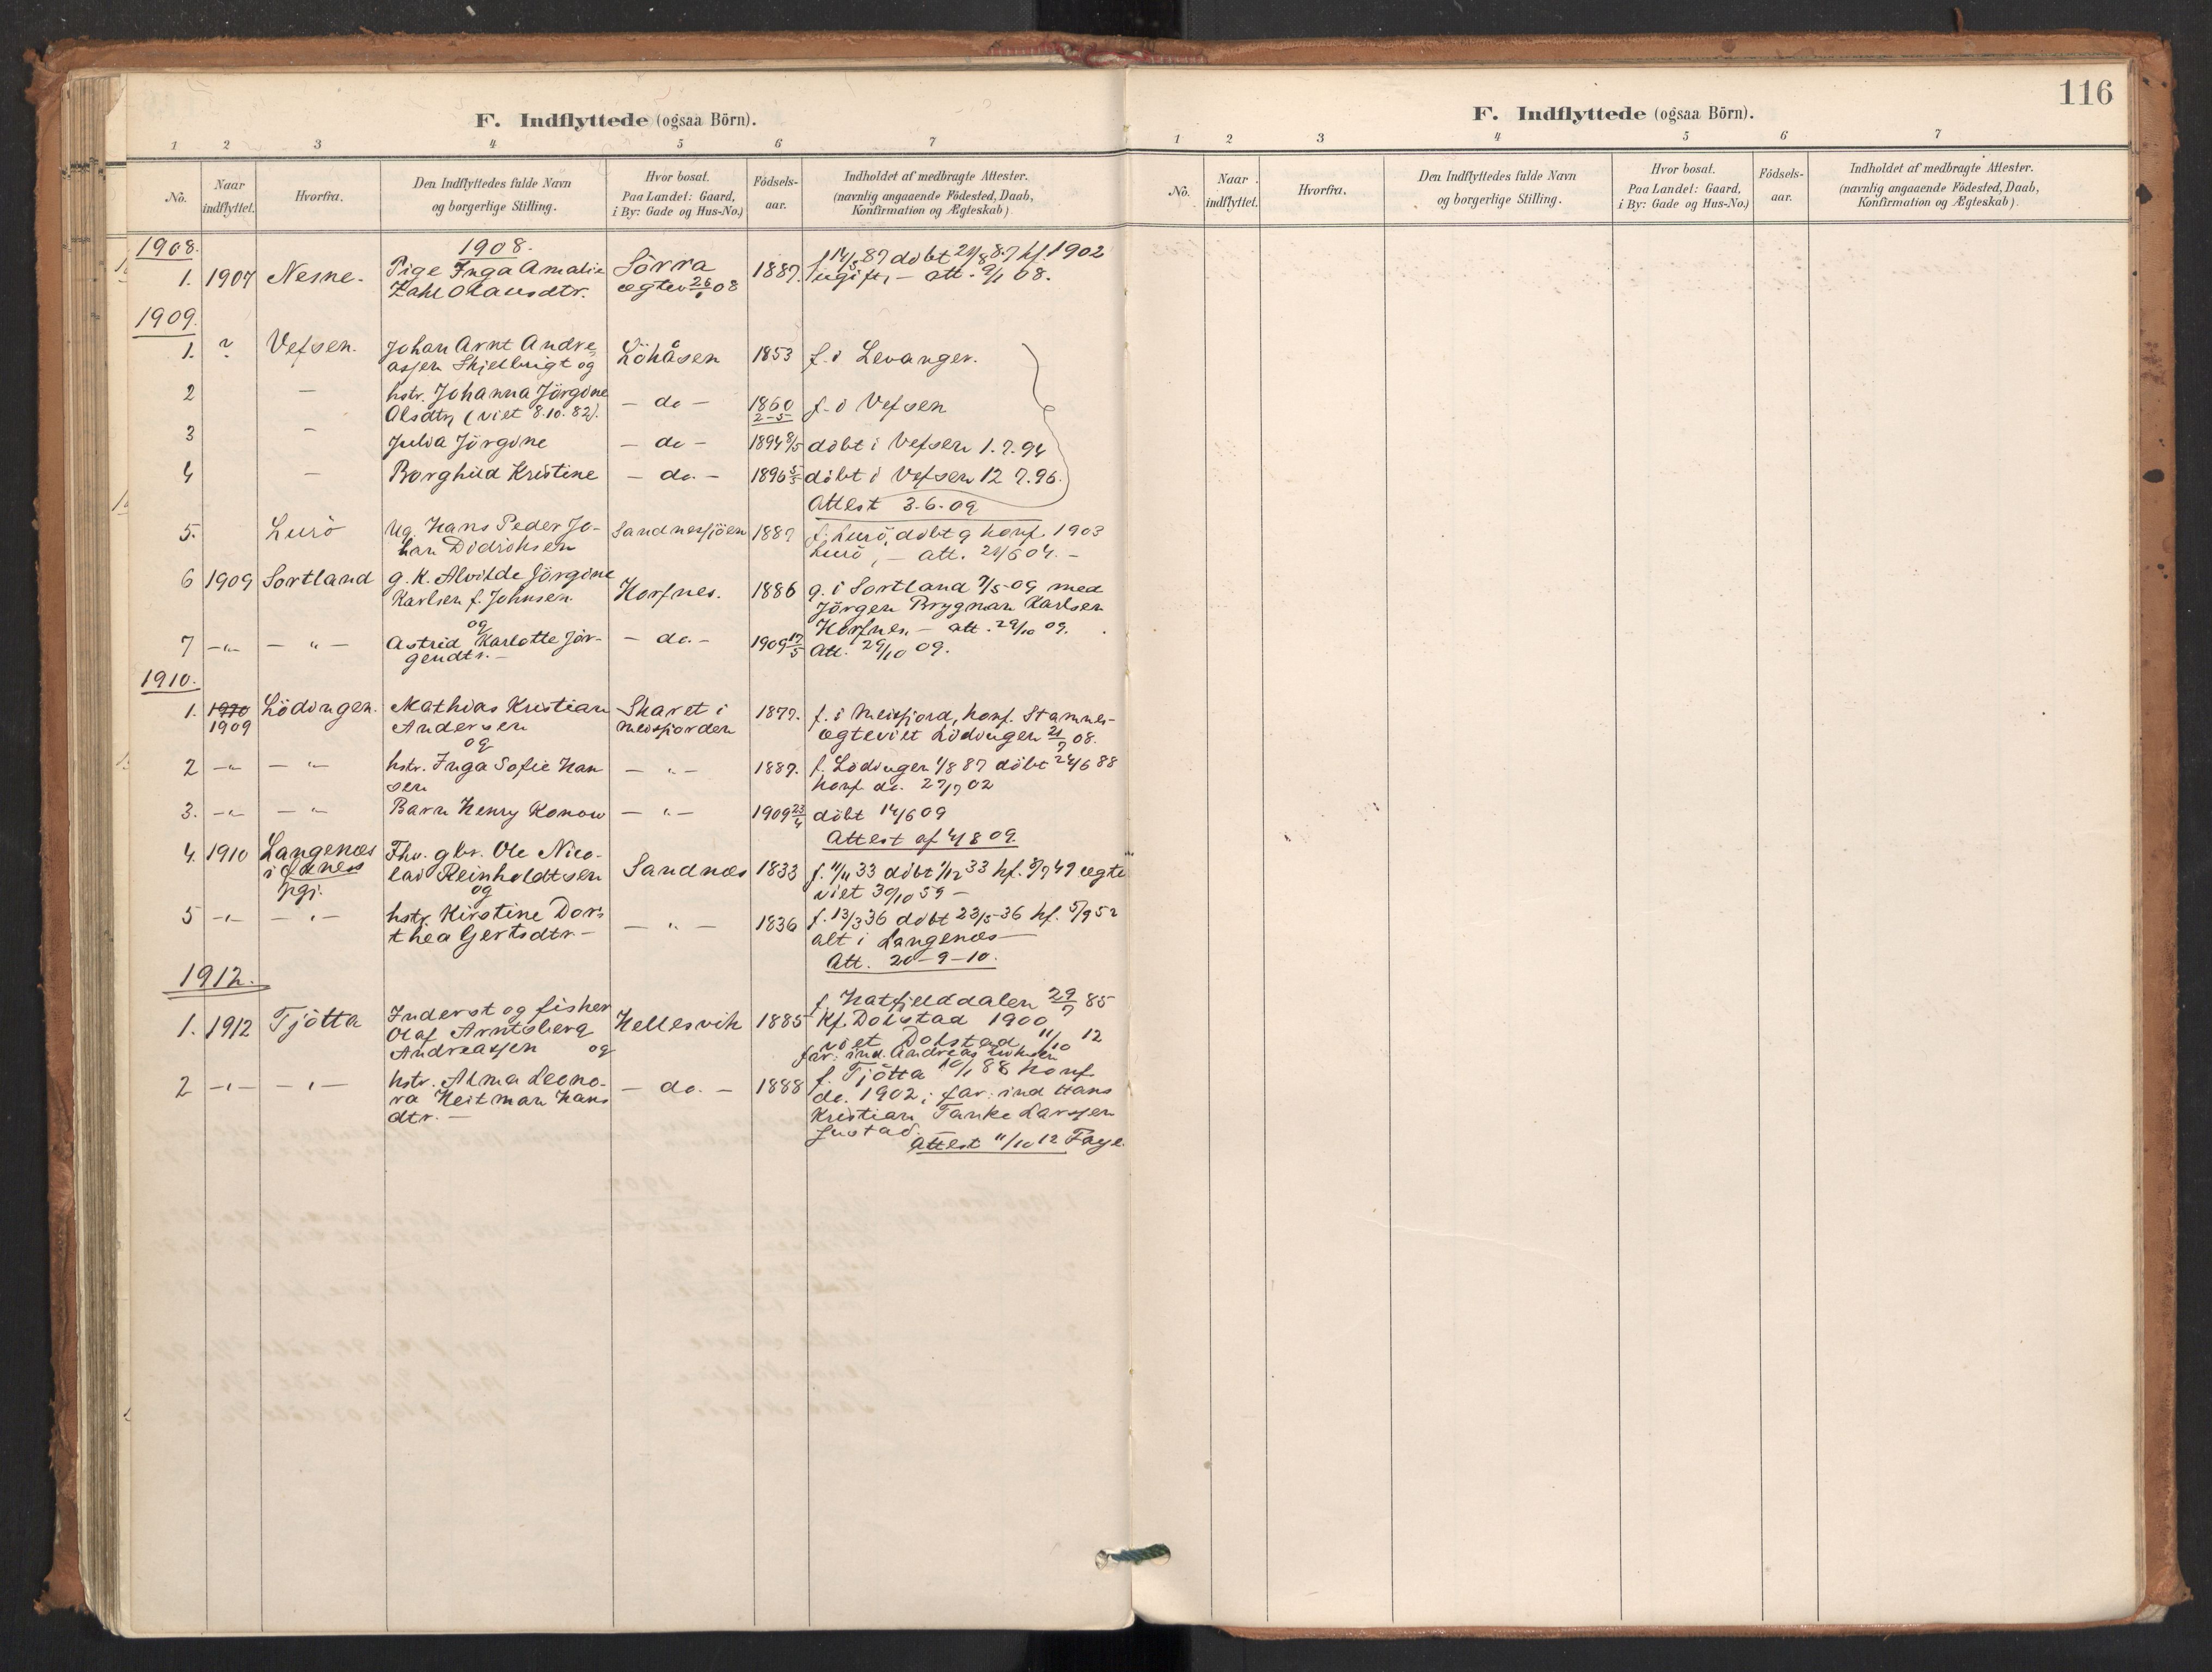 F. Indflyttede (ogsaa Börn).
1 2 3 4 5 6 7
No.
Naar indflyttet.
Hvorfra.
Den Indflyttedes fulde Navn og borgerlige Stilling.
Hvor bosat.
Paa Landet: Gaard,
i By: Gade og Hus-No.)
Födsels-
aar.
Indholdet af medbragte Attester.
(navnlig angaaende Födested, Daab,
Konfirmation og Ægteskab)
1908. 1908.
1. 1907 Nesne. Pige Inga Amalie Sörra 1887. f 14/5 87 döbt 21/8 87 kf. 1902
Zahl Olausdtr. ægtev 26/1 08 ugift, – att. 9/1 08.
1909.
1. ? Vefsen. Johan Arnt Andre- Löhåsen 1853 f. i Levanger.
assen Skjelbrigt og
2 – hstr. Johanna Jörgine – do – 1860 f. i Vefsen
Olsdtr, (viet 8.10.82). 2-5
3 – Julia Jörgine – do – 1894 8/5 döbt i Vefsen 1.7.94
4 – Borghild Kristine – do. – 1896 5/5 döbt i Vefsen 12 7.96.
Attest 3-6-09
5. Lurö Ug. Hans Peder Jo- Sandnessjöen 1887 f. Lurö, döbt g konf. 1903
han Didriksen Lurö, – att. 21/6 04. –
6 1909 Sortland g. K. Alvilde Jörgine Horfnes. 1886 g. i Sortland 7/5-09 med
Karlsen f. Johnsen. Jörgen Brygman Karlsen
og Horfnes. – att. 29/10 09.
7 –"– – " – Astrid Karlotte Jör- – do. – 1909 17/5 Att. 29/10 09.
gendtr. –
1910.
1. 1910 Lödingen. Mathias Kristian Skaret i 1877. f. i Meisfjord, konf. Stamnes-
1909 Andersen Meisfjorden ægteviet Lödingen 21/7 08.
og
2 –"– – " – hstr. Inga Sofie Han – " – 1887. f. Lödingen 1/8 87 döbt 24/6 88
sen konf. do. 27/7 02
3. –"– – " – Barn Henry Konow – " – 1909 23/4 döbt 14/6 09
Attest af 4/8 09.
4. 1910 Langenæs Fhv. gbr. Ole Nico- Sandnæs 1833 f. 11/11 33 döbt 1/12 33 kf. 8/7 49 ægte
i Öxnes lai Reinholdtsen viet 30/10 59 –
pgj. og
5 –"– – " – hstr. Kirstine Doro – " – 1836 f. 13/3 36 döbt 23/5-36 kf. 5/9 52
thea Gertsdtr. – alt i Langenæs –
Att. 20-9-10.
1912.
1. 1912 Tjötta Inderst og fisker Hellesvik 1885 f. Hatfjelddalen 29/7 85
Olaf Arntsberg Kf. Dolstad 1900
Andreassen og viet Dolstad 11/10 12
far: ind. Andreas
2 –"– – " – hstr. Alma Leono- – do. – 1888 f. Tjötta 10/1 88 konf
ra Heitman Hans do. 1902; far: ind Hans
dtr. – Kristian Tanke Larssen
Attest 11/10 12 Faye.
116
F. Indflyttede (ogsaa Börn).
1 2 3 4 5 6 7
No.
Naar indflyttet.
Hvorfra.
Den Indflyttedes fulde Navn og borgerlige Stilling.
Hvor bosat.
Paa Landet: Gaard,
i By: Gade og Hus-No.)
Födsels-
aar.
Indholdet af medbragte Attester.
(navnlig angaaende Födested, Daab,
Konfirmation og Ægteskab).